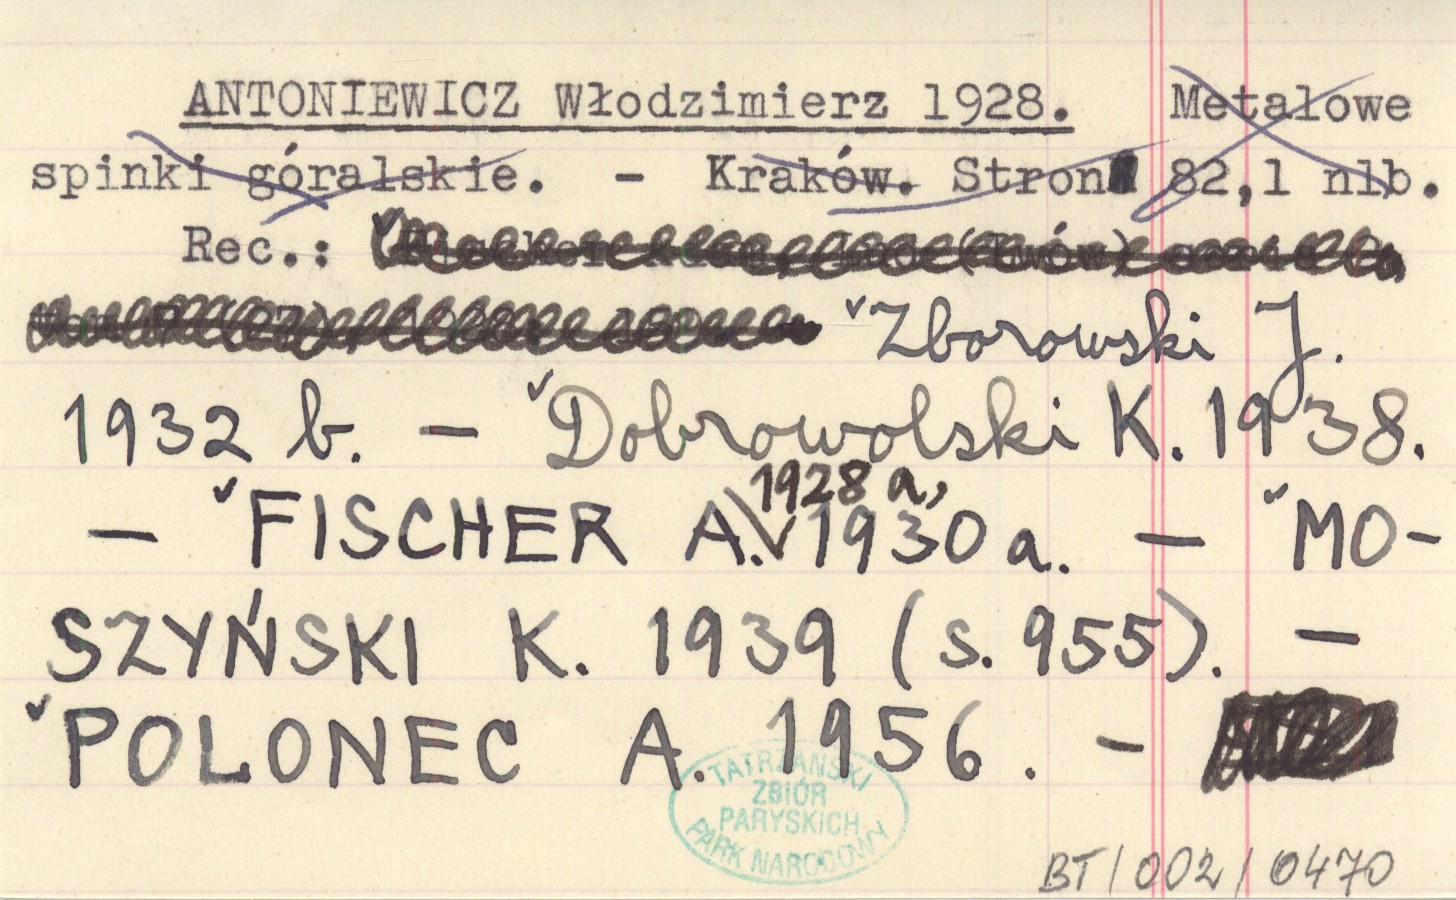 ANTONIEWICZ Włodzimierz 1928. Metalowe
spinki góralskie. - Kraków. Stron 82,1 nlb.
Rec.:
ˇZborowski J.
1932 b. - ˇDobrowolski K. 1938.
1928 a,
- ˇFISCHER A. 1930 a. - ˇMO-
SZYŃSKI K. 1939 (s. 955). -
ˇPOLONEC A. 1956. -
TATRZAŃSKI
ZBIÓR
PARYSKICH
PARK NARODOWY
BT/002/0470